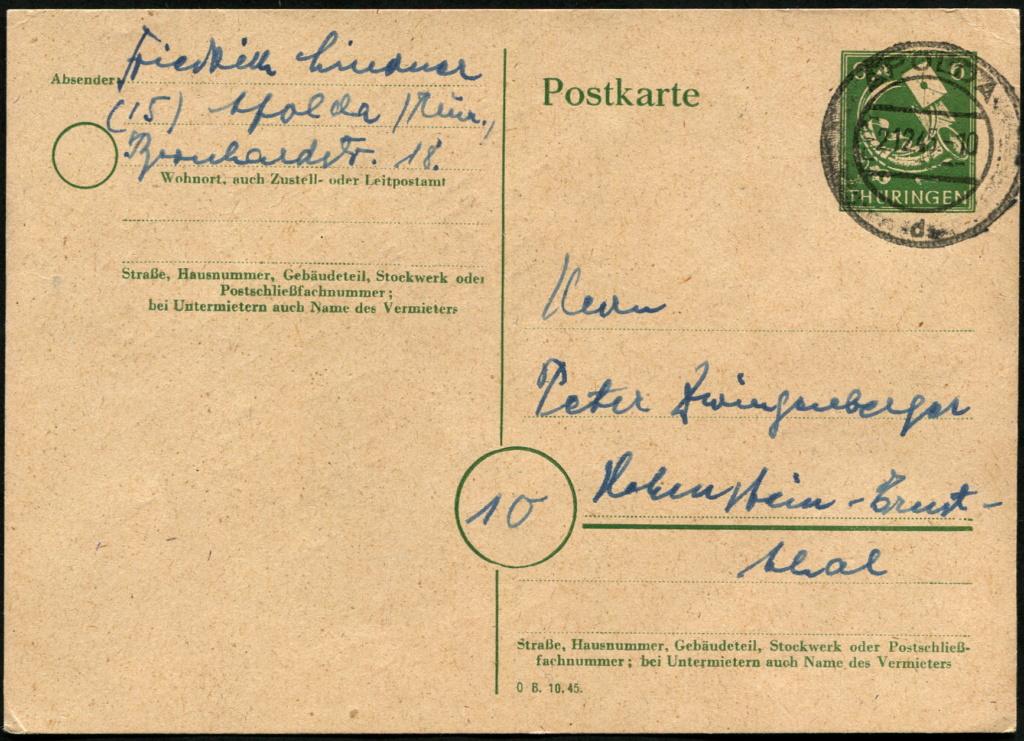 Absender:
Friedrich Lindner
(15) Apolda / Thür.,
Bernhardstr. 18.
Wohnort, auch Zustell- oder Leitpostamt
Straße, Hausnummer, Gebäudeteil, Stockwerk oder
Postschließfachnummer;
bei Untermietern auch Name des Vermieters
Postkarte
6 6
THÜRINGEN
APOLDA
d
Herrn
Peter Zwingenberger
10
Hohenstein-Ernst-
thal
Straße, Hausnummer, Gebäudeteil, Stockwerk oder Postschließ-
fachnummer; bei Untermietern auch Name des Vermieters
O B. 10. 45.